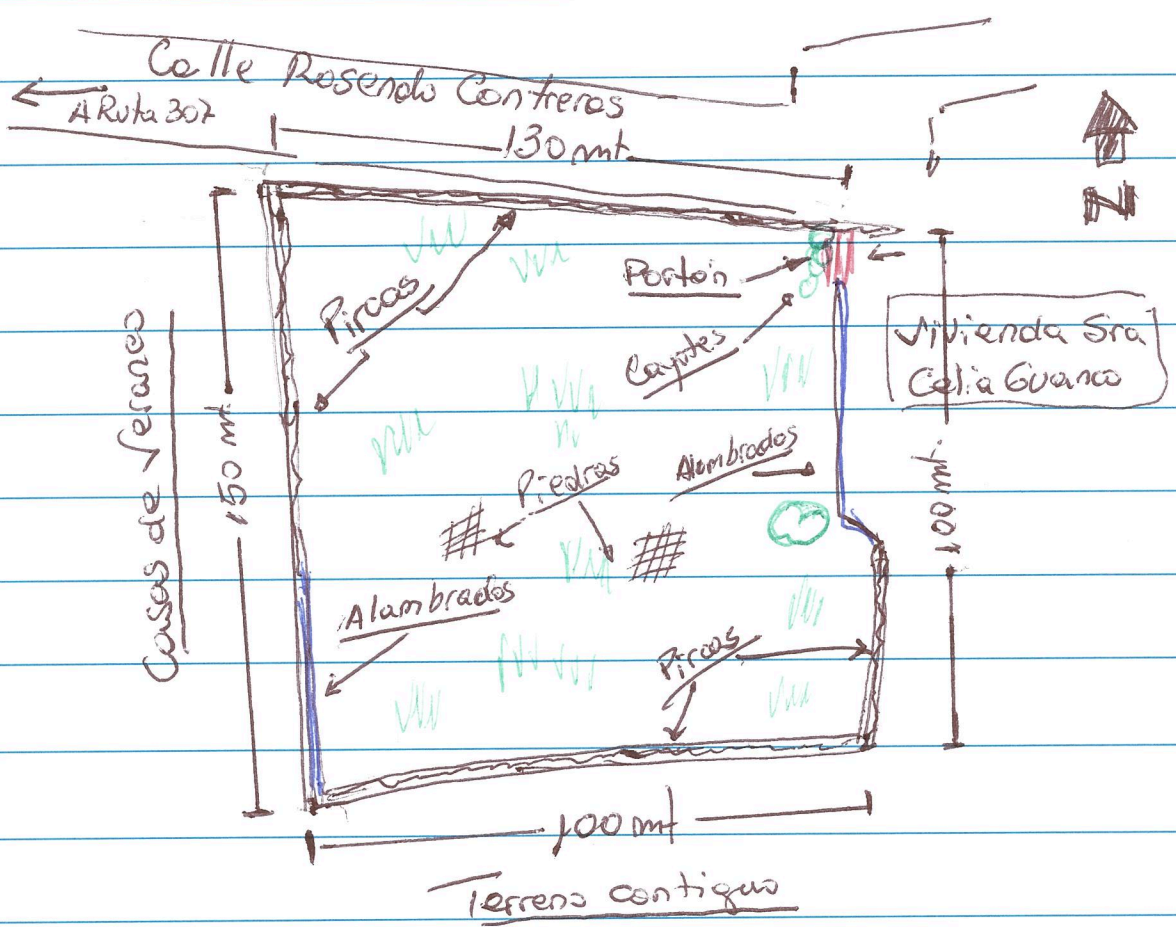 Calle Rosendo Contreras
A Ruta 307
130 mt
N
Pircas
Portón
Cayotes
Vivienda Sra
Celia Guanco
Casas de Veraneo
150 mt
Piedras
Alambrados
100 mt
Alambrados
Pircas
100 mt
Terreno contiguo